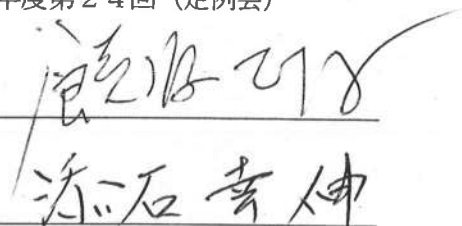 年度第２４回（定例会）
饒波
添石 幸伸